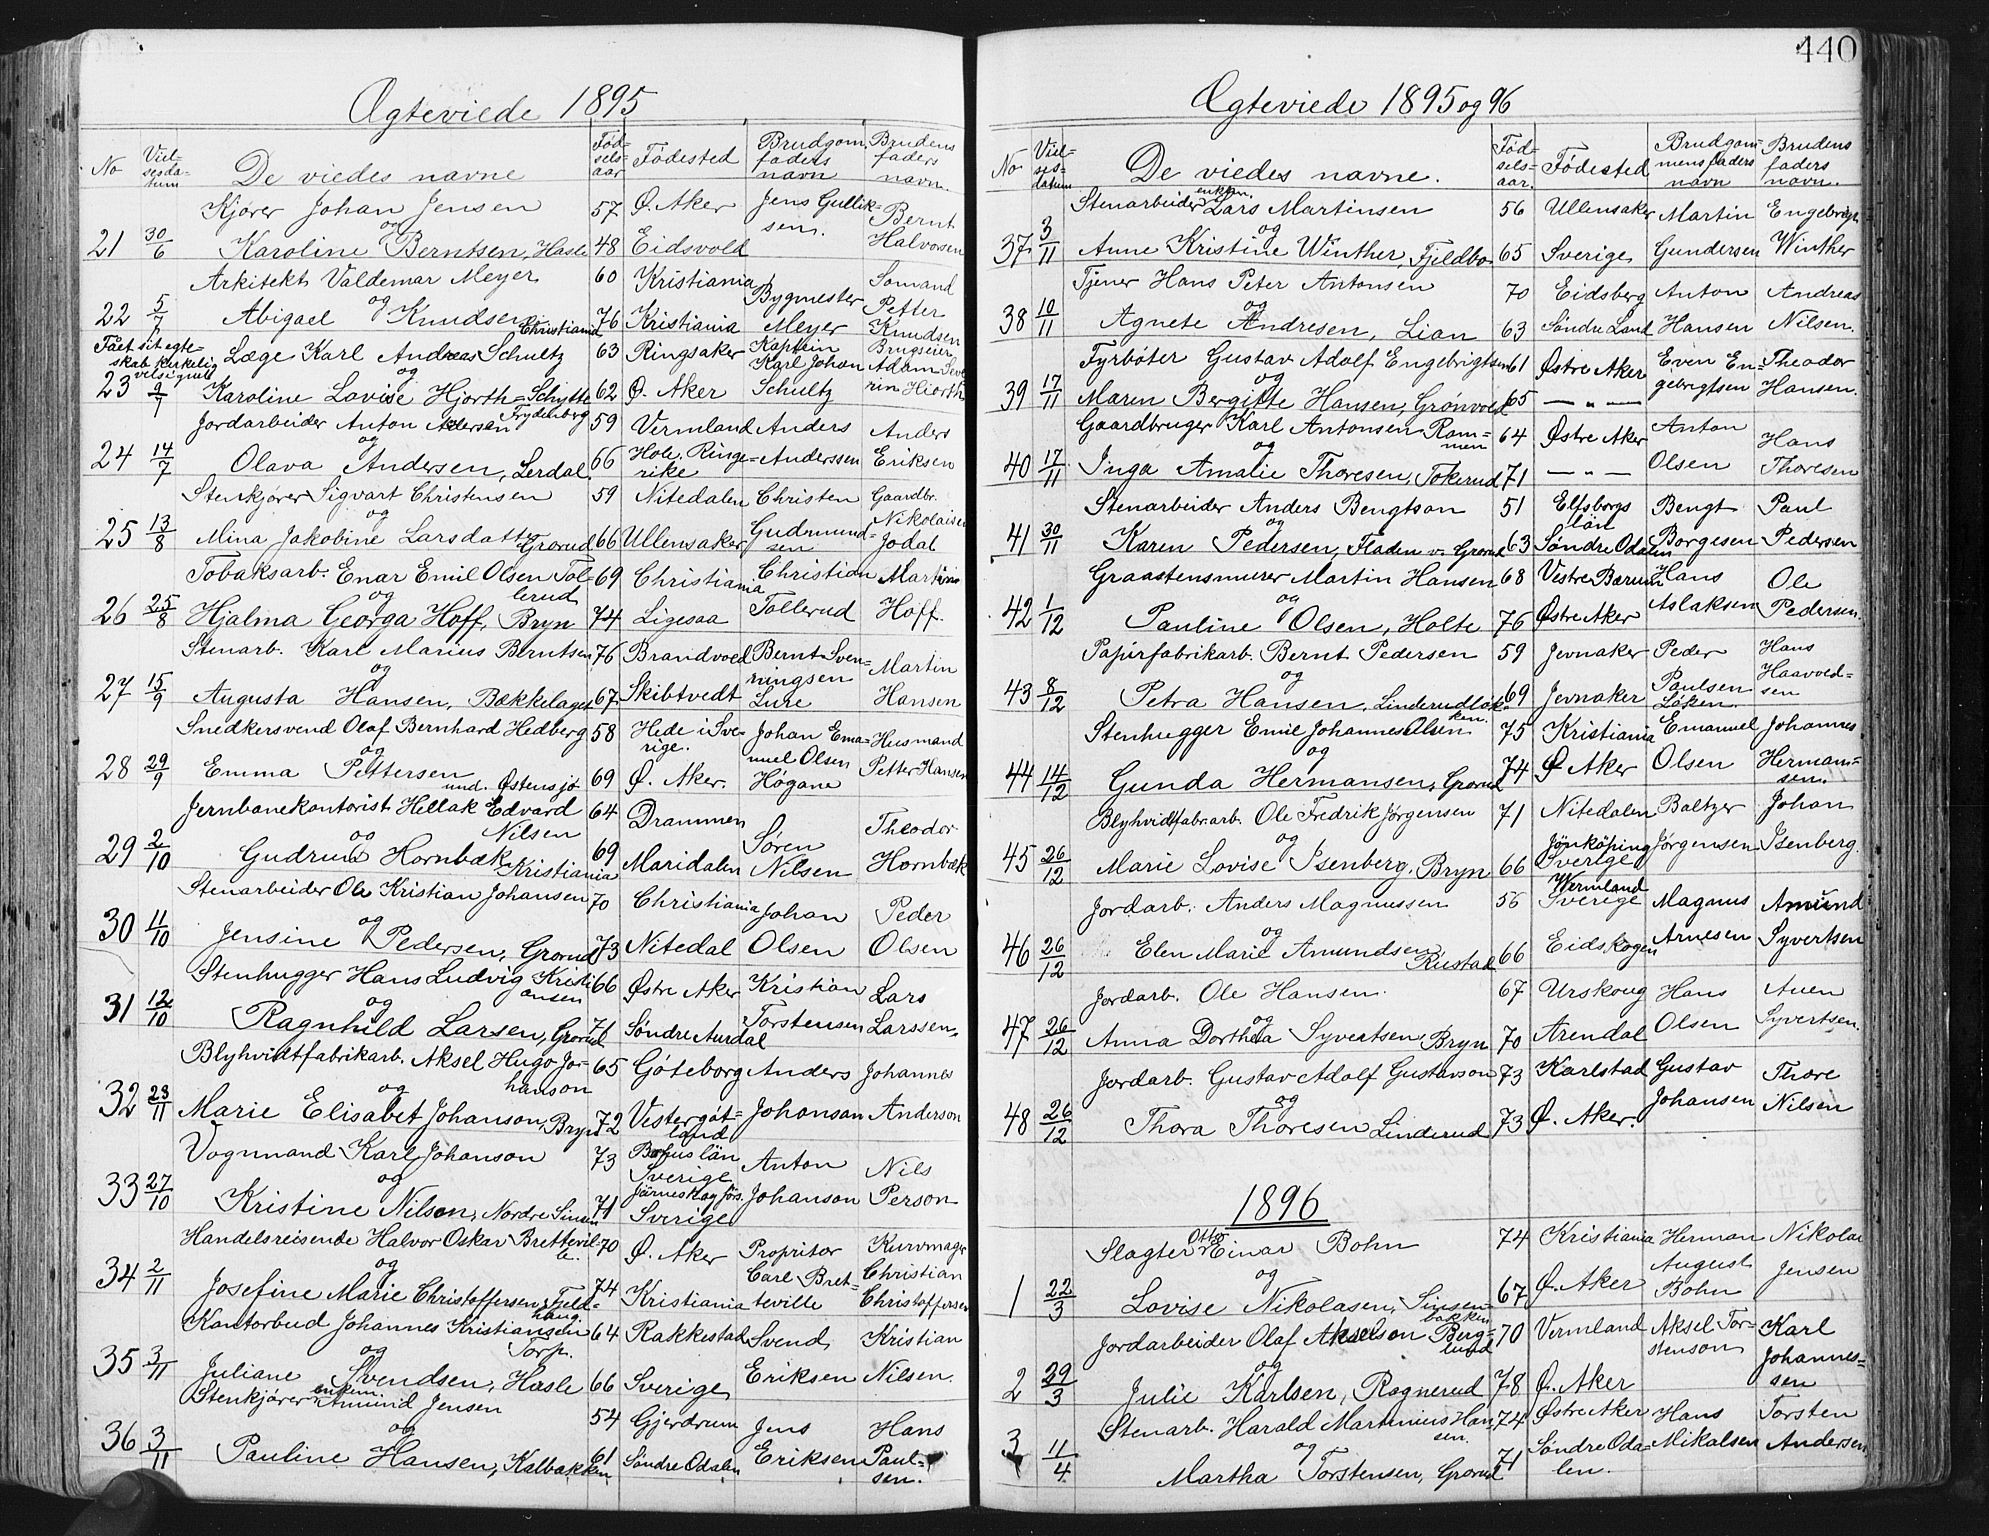 440
Ægteviede 1895
No Viel-sesda-tum De viedes navne Fød-sels-aar Fødested Brudgom. faders navn Brudens faders navn.
Kjører Johan Jensen 57 Ø. Aker Jens Gullik-sen. Bernt Halvorsen
og
21 30/6 Karoline Berntsen, Hasle 48 Eidsvold
Arkitekt Valdemar Meyer 60 Kristiania Bygmester Meyer Somand Petter Knudsen
og
22 5/7 Abigael Knudsen Christiania 76 Kristiania
Faaet sit egte-skab kirkelig velsignet Læge Karl Andreas Schultz 63 Ringsaker Kaptein Karl Johan Schultz Brugseier Adam Seve-rin Hiorth
og
23 9/7 Karoline Lovise Hjorth-Schytte Frydenberg 62 Ø. Aker
Jordarbeider Anton Andersen 59 Vermland Anders Anderssen Anders Eriksen
og
24 14/7 Olava Andersen, Lerdal 66 Hole, Ringe-rike
Stenkjører Sigvart Christensen 59 Nitedalen Christen Gudmund-sen Gaardbr. Nikolaisen Jodal
og
25 13/8 Mina Jakobine Larsdatter Grorud 66 Ullensaker
Tobaksarb. Enar Emil Olsen Tol-lerud 69 Christiania Christian Tollerud Martinus Hoff.
og
26 25/8 Hjalma Georga Hoff, Bryn 74 Ligesaa
Stenarb. Karl Marius Berntsen 76 Brandvold Bernt Sven-ningsen Lure Martin Hansen
og
27 15/9 Augusta Hansen, Bækkelaget 67. Skibtvedt
Snedkersvend Olaf Bernhard Hedberg 58 Hede i Sve-rige. Johan Ema-nuel Olsen Høgane Husmand Petter Hansen
og
28 29/9 Emma Pettersen und. Østensjø 69 Ø. Aker.
Jernbanekontorist Hellak Edvard Nilsen 64 Drammen Søren Nilsen Theodor Hornbæk
og
29 2/10 Gudrun Hornbæk Kristiania 69 Maridalen
Stenarbeider Ole Kristian Johansen 70 Christiania Johan Olsen Peder Olsen
og
30 11/10 Jensine Pedersen, Grorud 73 Nitedal
Stenhugger Hans Ludvig Kristi-ansen 66 Østre Aker Kristian Torstensen Lars Larssen.
og
31 12/10 Ragnhild Larsen, Grorud 71 Søndre Aurdal
Blyhvidtfabrikarb. Aksel Hugo Jo-hanson 65 Gøteborg Anders Johanson Johannes Anderson
og
32 23/11 Marie Elisabet Johanson, Bryn 72 Vestergøt-land
Vognmand Karl Johanson 73 Bohuslän Sverige Anton Johanson Nils Person
og
33 27/10 Kristine Nilson, Nordre Sinsen 71 Sverige
Handelsreisende Halvor Oskar Brettevil-le. 70 Ø. Aker Propritær Carl Bret-teville Kurvmager Christian Christoffersen
og
34 2/11 Josefine Marie Christoffersen, Fjeld-haug. 74 Kristiania
Kontorbud Johannes Kristiansen Torp. 64 Rakkestad Svend Eriksen Kristian Nilsen.
og
35 3/11 Juliane Svendsen, Hasle 66 Sverige
Stenkjører enkem. Amund Jensen 54 Gjerdrum Jens Eriksen Hans Paul-sen.
og
36 3/11 Pauline Hansen, Kalbakken 61 Søndre Odalen
Ægteviede 1895 og 96
No Viel-ses-datum De viedes navne. Fød-sels-aar. Fødested Brudgom-mens faders navn Brudens faders navn.
Stenarbeider enkem. Lars Martinsen 56 Ullensaker Martin Gundersen Engebrigt Winther
og
37 3/11 Anne Kristine Winther, Fjeldbo 65 Sverige
Tjener Hans Peter Antonsen 70 Eidsberg Anton Hansen Andreas Nilsen.
og
38 10/11 Agnete Andresen, Lian 63 Søndre Land
Fyrbøter Gustav Adolf Engebrigtsen 61 Østre Aker Even En-gebrigtsen Theodor Hansen.
og
39 17/11 Maren Bergitte Hansen, Grønvold 65 — " —
Gaardbruger Karl Antonsen Rom-men 64 Østre Aker Anton Olsen Hans Thoresen
og
40 17/11 Inga Amalie Thoresen, Tokerud 71 — " —
Stenarbeider Anders Bengtson 51 Elfsborgs län Bengt Borgesen Paul Pedersen
og
41 30/11 Karen Pedersen, Fladen v. Grorud 63 Søndre Odalen
Graastensmurer Martin Hansen 68 Vestre Bærum Hans Aslaksen Ole Pedersen.
og
42 1/12 Pauline Olsen, Holte 76 Østre Aker
Papirfabrikarb. Bernt Pedersen 59 Jevnaker Peder Paulsen Løken. Hans Haavold-sen
og
43 8/12 Petra Hansen, Linderudløk-ken. 69 Jevnaker
Stenhugger Emil Johannes Olsen 75 Kristiania Emanuel Olsen Johannes Herman-sen.
og
44 14/12 Gunda Hermansen, Grorud 74 Ø Aker
Blyhvidtfabr.arb. Ole Fredrik Jørgensen 71 Nitedalen Baltzer Jørgensen Johan Isenberg.
og
45 26/12 Marie Lovise Isenberg, Bryn 66 Jönköping Sverige
Jordarb. Anders Magnussen 56 Wermland Sverige Magnus Arnesen Amund Syvertsen
og
46 26/12 Elen Marie Amundsen Rustad 66 Eidskogen
Jordarb. Ole Hansen. 67 Urskoug Hans Olsen Auen Syvertsen.
og
47 26/12 Anna Dorthea Syvertsen, Bryn 70 Arendal
Jordarb. Gustav Adolf Gustavson 73 Karlstad Gustav Johansen Thore Nilsen
og
48 26/12 Thora Thoresen Linderud 73 Ø. Aker.
1896
Slagter Otto Einar Bohn 74 Kristiania Herman August Bohn Nikolai Jensen
og
1 22/3 Lovise Nikolasen, Sinsen-bakken 67 Ø. Aker
Jordarbeider Olaf Akselson Berg-lund 70 Vermland Aksel Tor-stenson Karl Johannes-sen
og
2 29/3 Julie Karlsen, Rognerud 78 Ø. Aker
Stenarb. Harald Martinius Han-sen. 74 Østre Aker Hans Mikalsen Torsten Andersen
og
3 11/4 Martha Torstensen, Grorud 71 Søndre Oda-len.